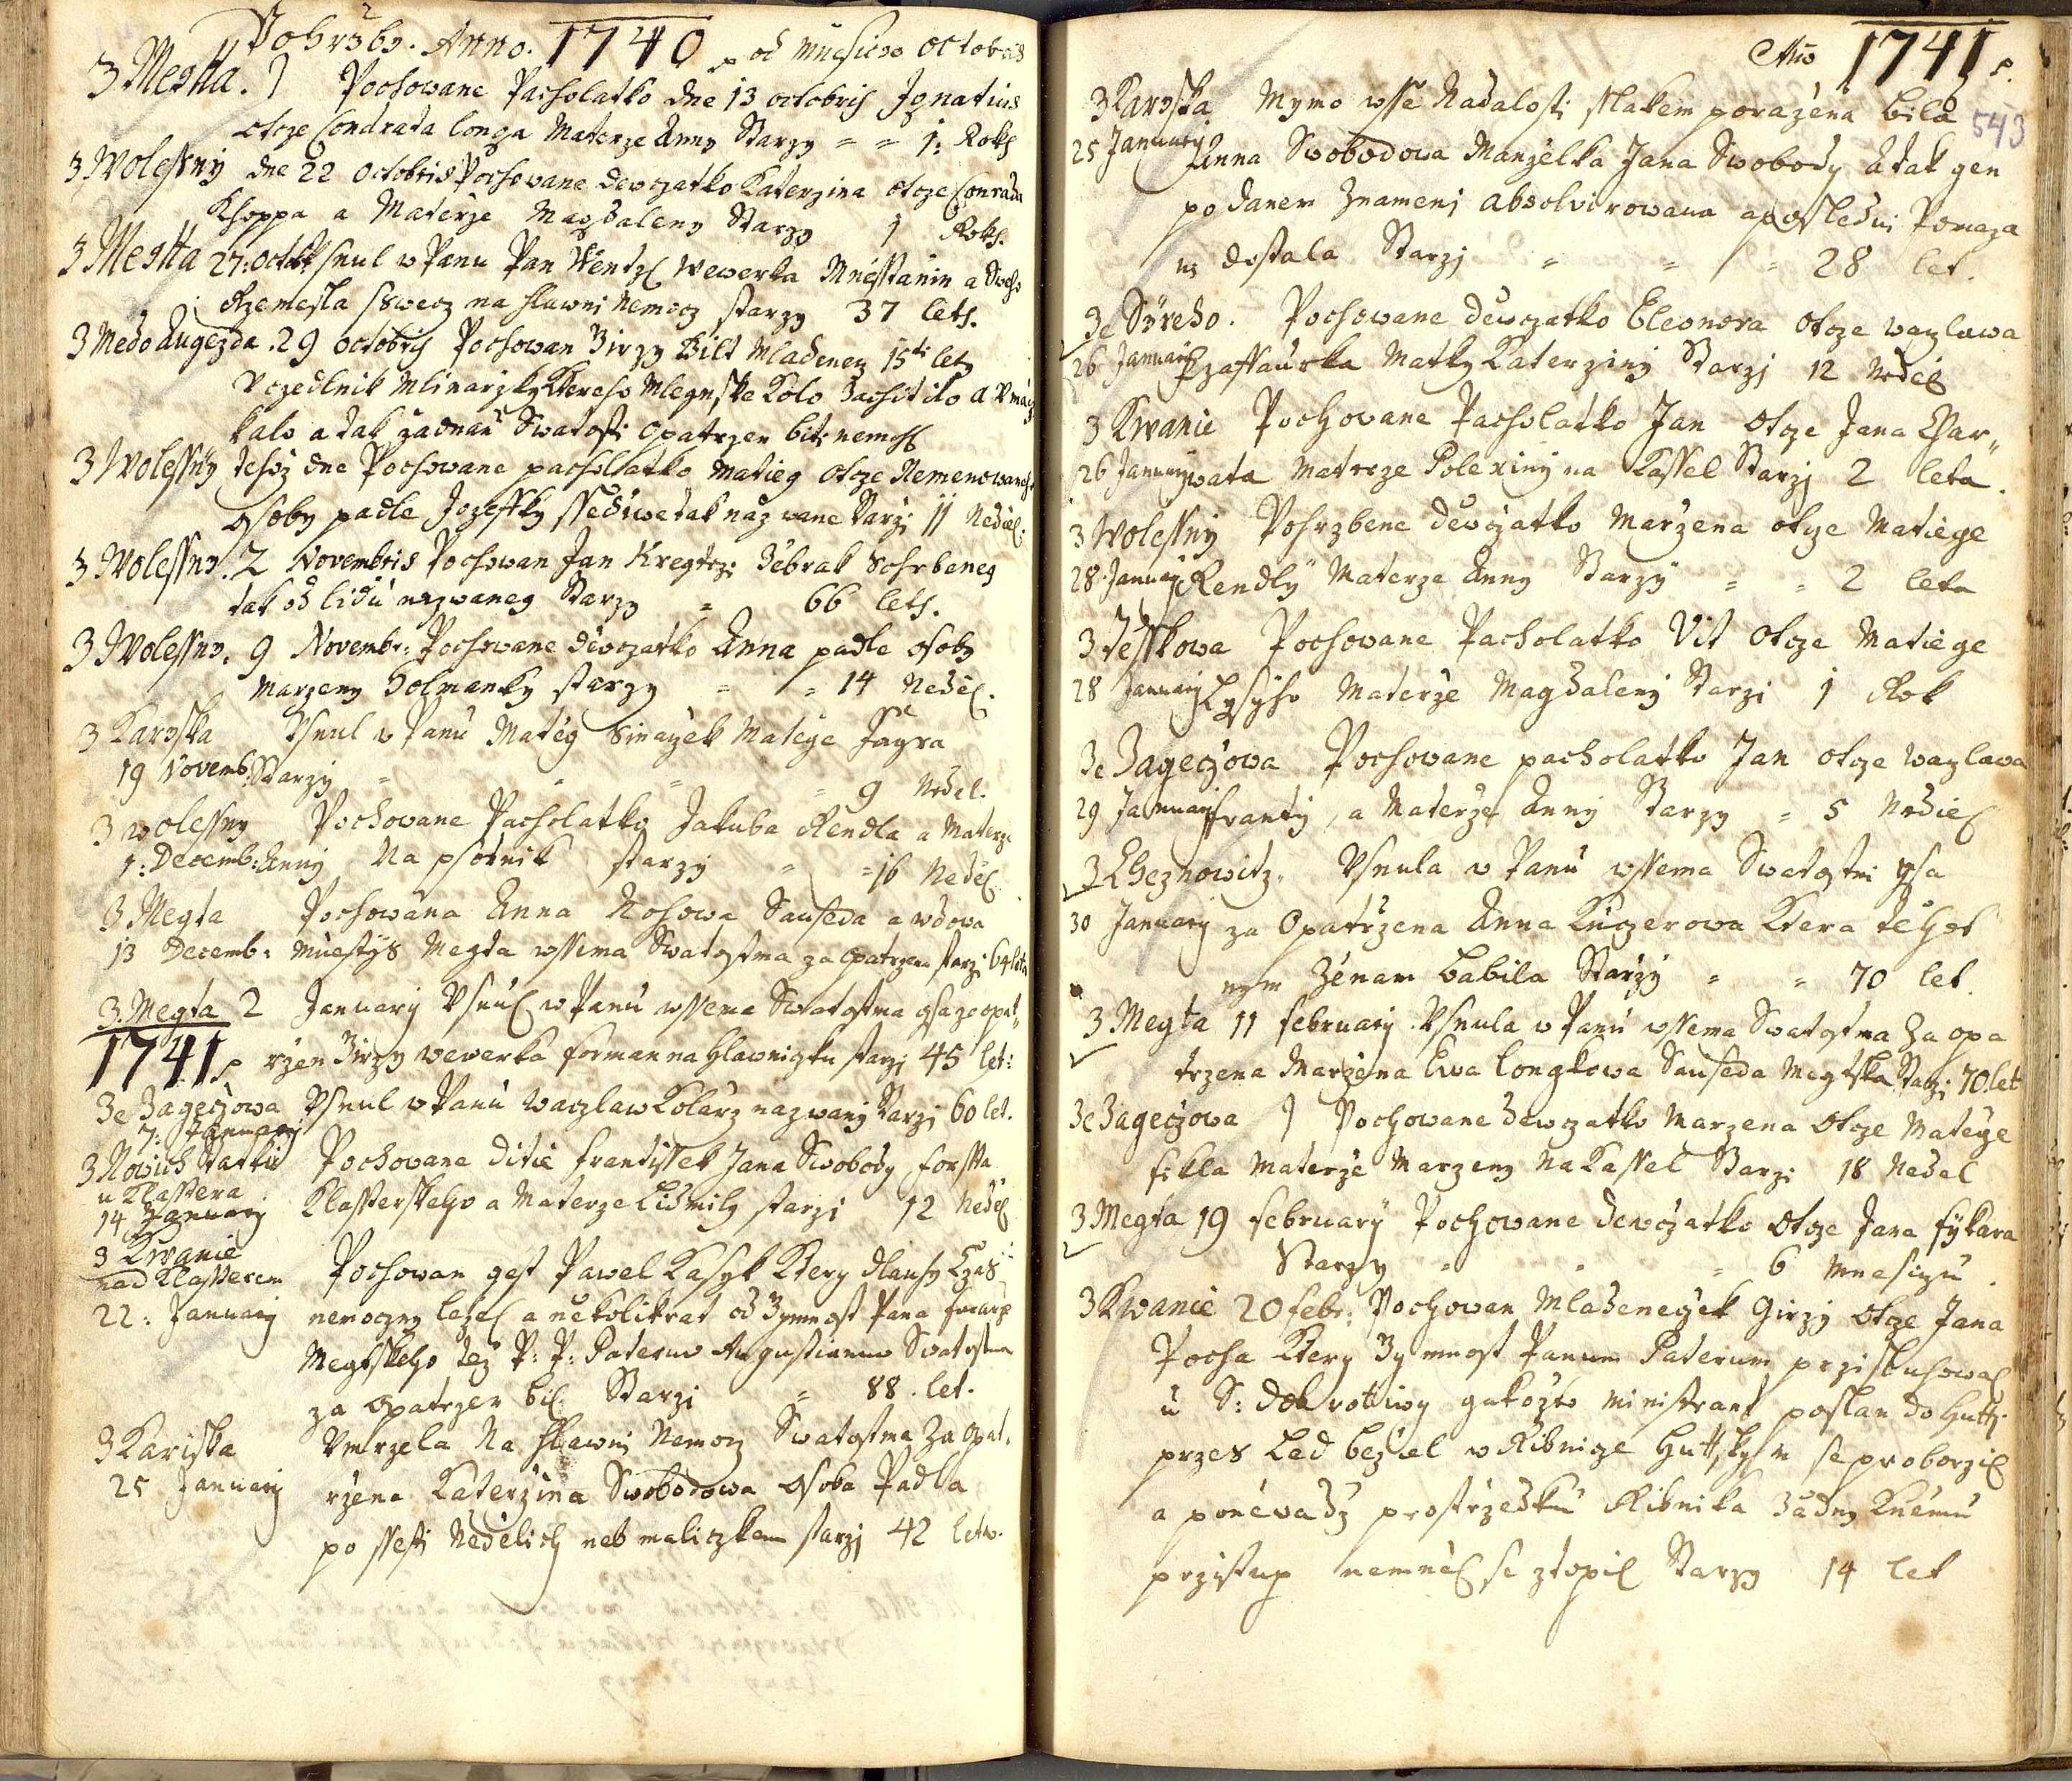 Pohržby. Anno. 1740 od Mniesicze Octobris
3 Megtta. Pochowane Pacholatko dne 13 octobris Ignatius
otcze Condrata Longa Materze Anny Starzy = = 1: Roku
3 Wolessny dne 22 Octobris Pochowane dewczatko Katerzina otcze Conrada
Khoppa a Materze Magdaleny Starzy 1 Roku.
3 Megtta 27: octob: Usnul w Panu Pan Wentzl Wewerka Mniesstanin a Sweho
Rzemesla sswecz na hlawni Nemocz starzy 37 leth.
3 Medo Augezda. 29 octobris Pochowan Girzy Bilt Mladenecz 15ti let
Uczedlnik Mlinarzky Ktereho Mlegnske Kolo zachitilo a
kalo a tak zadnau Swatosti opatrzen biti nemohl
3 Wolessny tehoz dne Pochowane pacholatko Matieg otcze Nemenowaneho
osoby padle Jozeffky ssediwe tak naz wane Starzi 11 Nediel.
3 Wolessny. 2 Novembris Pochowan Jan Kregtrzi Zebrak Sohrbeneg
tak od lidu nazwaneg Starzy = 66 leth.
3 Wolessny. 9 Novembr: Pochowane diewczatko Anna padle osoby
Marzeny Holmanky starzy = = 14 Nediel.
3 Karyska Usnul w Panu Mateg Sinaczek Matege Fagra
19 Novemb: Starzy = = = 9 Nedel.
3 Wolessny Pochowane Pacholatko Jakuba Rendla a Materze
1: Decemb: Anny Na psotnik starzy = = 16 Nedel
3 Megta Pochowana Anna Nohowa Sauseda a wdowa
13 Decemb: Miestys Megta wssema Swatostma za opatrzena starzi 64 leta
3. Megta 2 January Usnul w Panu wssema Swatostma gsa za opat„
1741 rzen Girzy Wewerka forman na hlawnizku starzi 45 let:
Ze Zageczowa Usnul w Panu Waczlaw Kolarz nazwany Starzi 60 let.
7: January
3 Nowich Statku Pochowane ditie Frantissek Jana Swobody Forssta
u Klasstera Klassterskeho a Materze Lidmily starzi 12 Nedel
14 January
3 Kwanie
nad Klasserem Pochowan gest Pawel Kasyk Ktery dlauhy Czas
22: January nemoczny lezel a nekolikrat od Zymnost Pana
Megtskeho tez P: P: Paterum Augustianum Swatostma
za opatrzen bil Starzi = 88. let.
3 Kariska Umrzela Na Hlawni Nemocz Swatostma Za opat„
25 January rzena Katerzina Swobodowa osoba Padla
po ssesti Nedelich neb maliczkem starzj 42 letu.
Ano 1741
543
3 Karyska Mymo wsse Nadalosti sslakem porazena bila
25 January Anna Swobodowa Manzelka Jana Swobody a tak gen
po danem Znameni absolvirowana a posledni Pomaza
ni dostala Starzj = = = 28 let.
Ze Syreho. Pochowane dewczatko Eleonora otcze Waczlawa
26 January Czaffaurka Matky Katerziny Starzj 12 Nedel
3 Kwanie Pochowane Pacholatko Jan otcze Jana Char„
26 January wata Matercze Polexiny na Kassel Starzj 2 leta.
3 Wolessny Pohrzbene dewczatko Marzena otcze Matiege
28 January Rendly Materze Anny Starzy = = 2 leta
3 Tesskowa Pochowane Pacholatko Vit otcze Matiege
28 January Lysyho Materze Magdaleny Starzi 1 Rok
Ze Zageczowa Pochowane pacholatko Jan otcze Waczlawa
29 January Franty, a Materze Anny Starzy = 5 Nediel
3 Cheznowitz. Usnula w Panu wssema Swatostmi gsa
30 January za Opatrzena Anna Kuczerowa Ktera tehot
nym Zenam babila Starzy = = 70 let.
3 Megta 11 february. Usnula w Panu wssema Swatostma Za opa
trzena Marzena Ewa Longkowa Sauseda Megtska Starzi 70 let
Ze Zageczowa Pochowane Dewczatko Marzena otcze Matege
fikla Materze Marzeny Na Kassel Starzi 18 Nedel
3 Megta 19 february Pochowane dewczatko otcze Jana fykara
Starzy = = = 6 Mnesiczu.
3 Kwanie 20 febr: Pochowan Mladeneczek Girzy otcze Jana
Pocha Ktery Zymnost Panum Paterum przisluhowal
u S: Dobrotiwy gakozto Ministrant poslan do Hutti
przes Led bezel w Ribnicze Huttskym se proborzil
a ponewadz prostrzedku Ribnika Zadny Knemu
przistup nemnel se ztopil Starzy 14 let